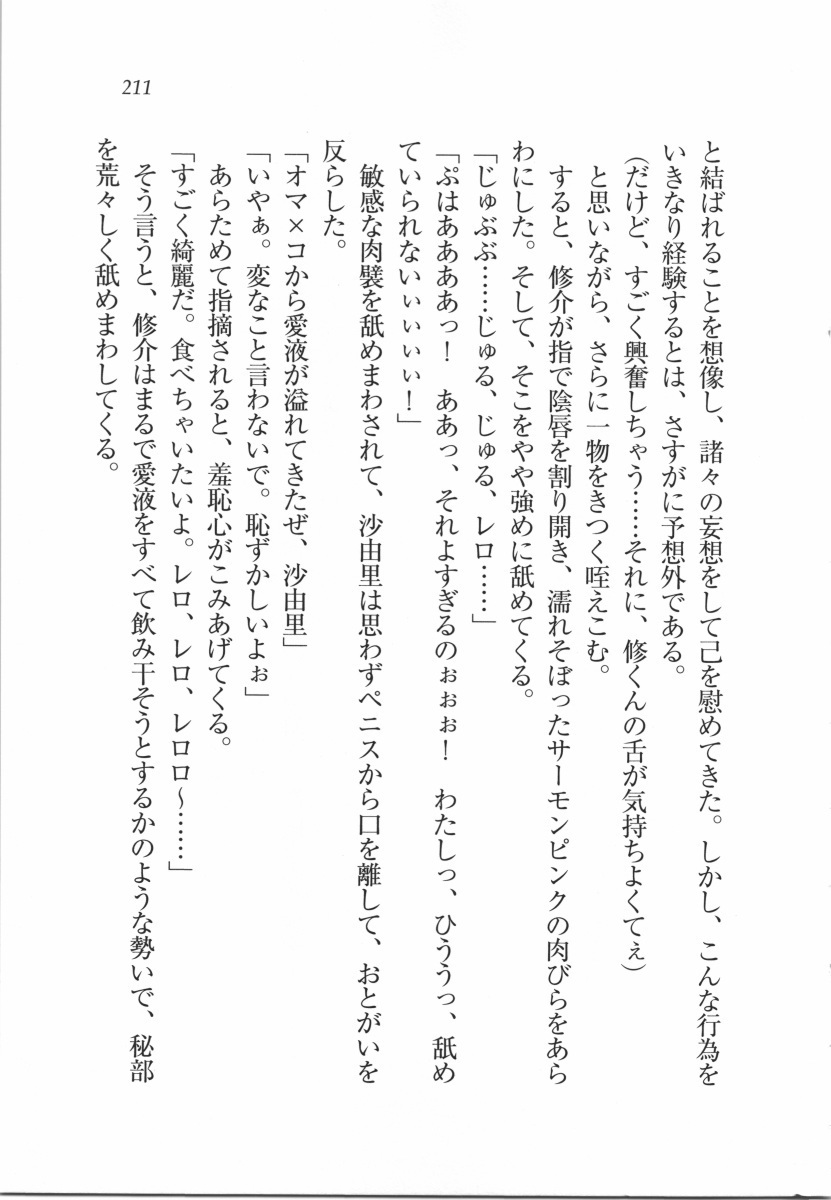 211
と結ばれることを想像し、諸々の妄想をして己を慰めてきた。しかし、こんな行為を
いきなり経験するとは、さすがに予想外である。
(だけど、すごく興奮しちゃう……それに、修くんの舌が気持ちよくてぇ)
と思いながら、さらに一物をきつく咥えこむ。
すると、修介が指で陰唇を割り開き、濡れそぼったサーモンピンクの肉びらをあら
わにした。そして、そこをやや強めに舐めてくる。
「じゅぶぶ……じゅる、じゅる、レロ……」
「ぷはああああっ！　ああっ、それよすぎるのぉぉぉ！　わたしっ、ひううっ、舐め
ていられないぃぃぃぃ！」
敏感な肉襞を舐めまわされて、沙由里は思わずペニスから口を離して、おとがいを
反らした。
「オマ×コから愛液が溢れてきたぜ、沙由里」
「いやぁ。変なこと言わないで。恥ずかしいよぉ」
あらためて指摘されると、羞恥心がこみあげてくる。
「すごく綺麗だ。食べちゃいたいよ。レロ、レロ、レロロ～……」
そう言うと、修介はまるで愛液をすべて飲み干そうとするかのような勢いで、秘部
を荒々しく舐めまわしてくる。